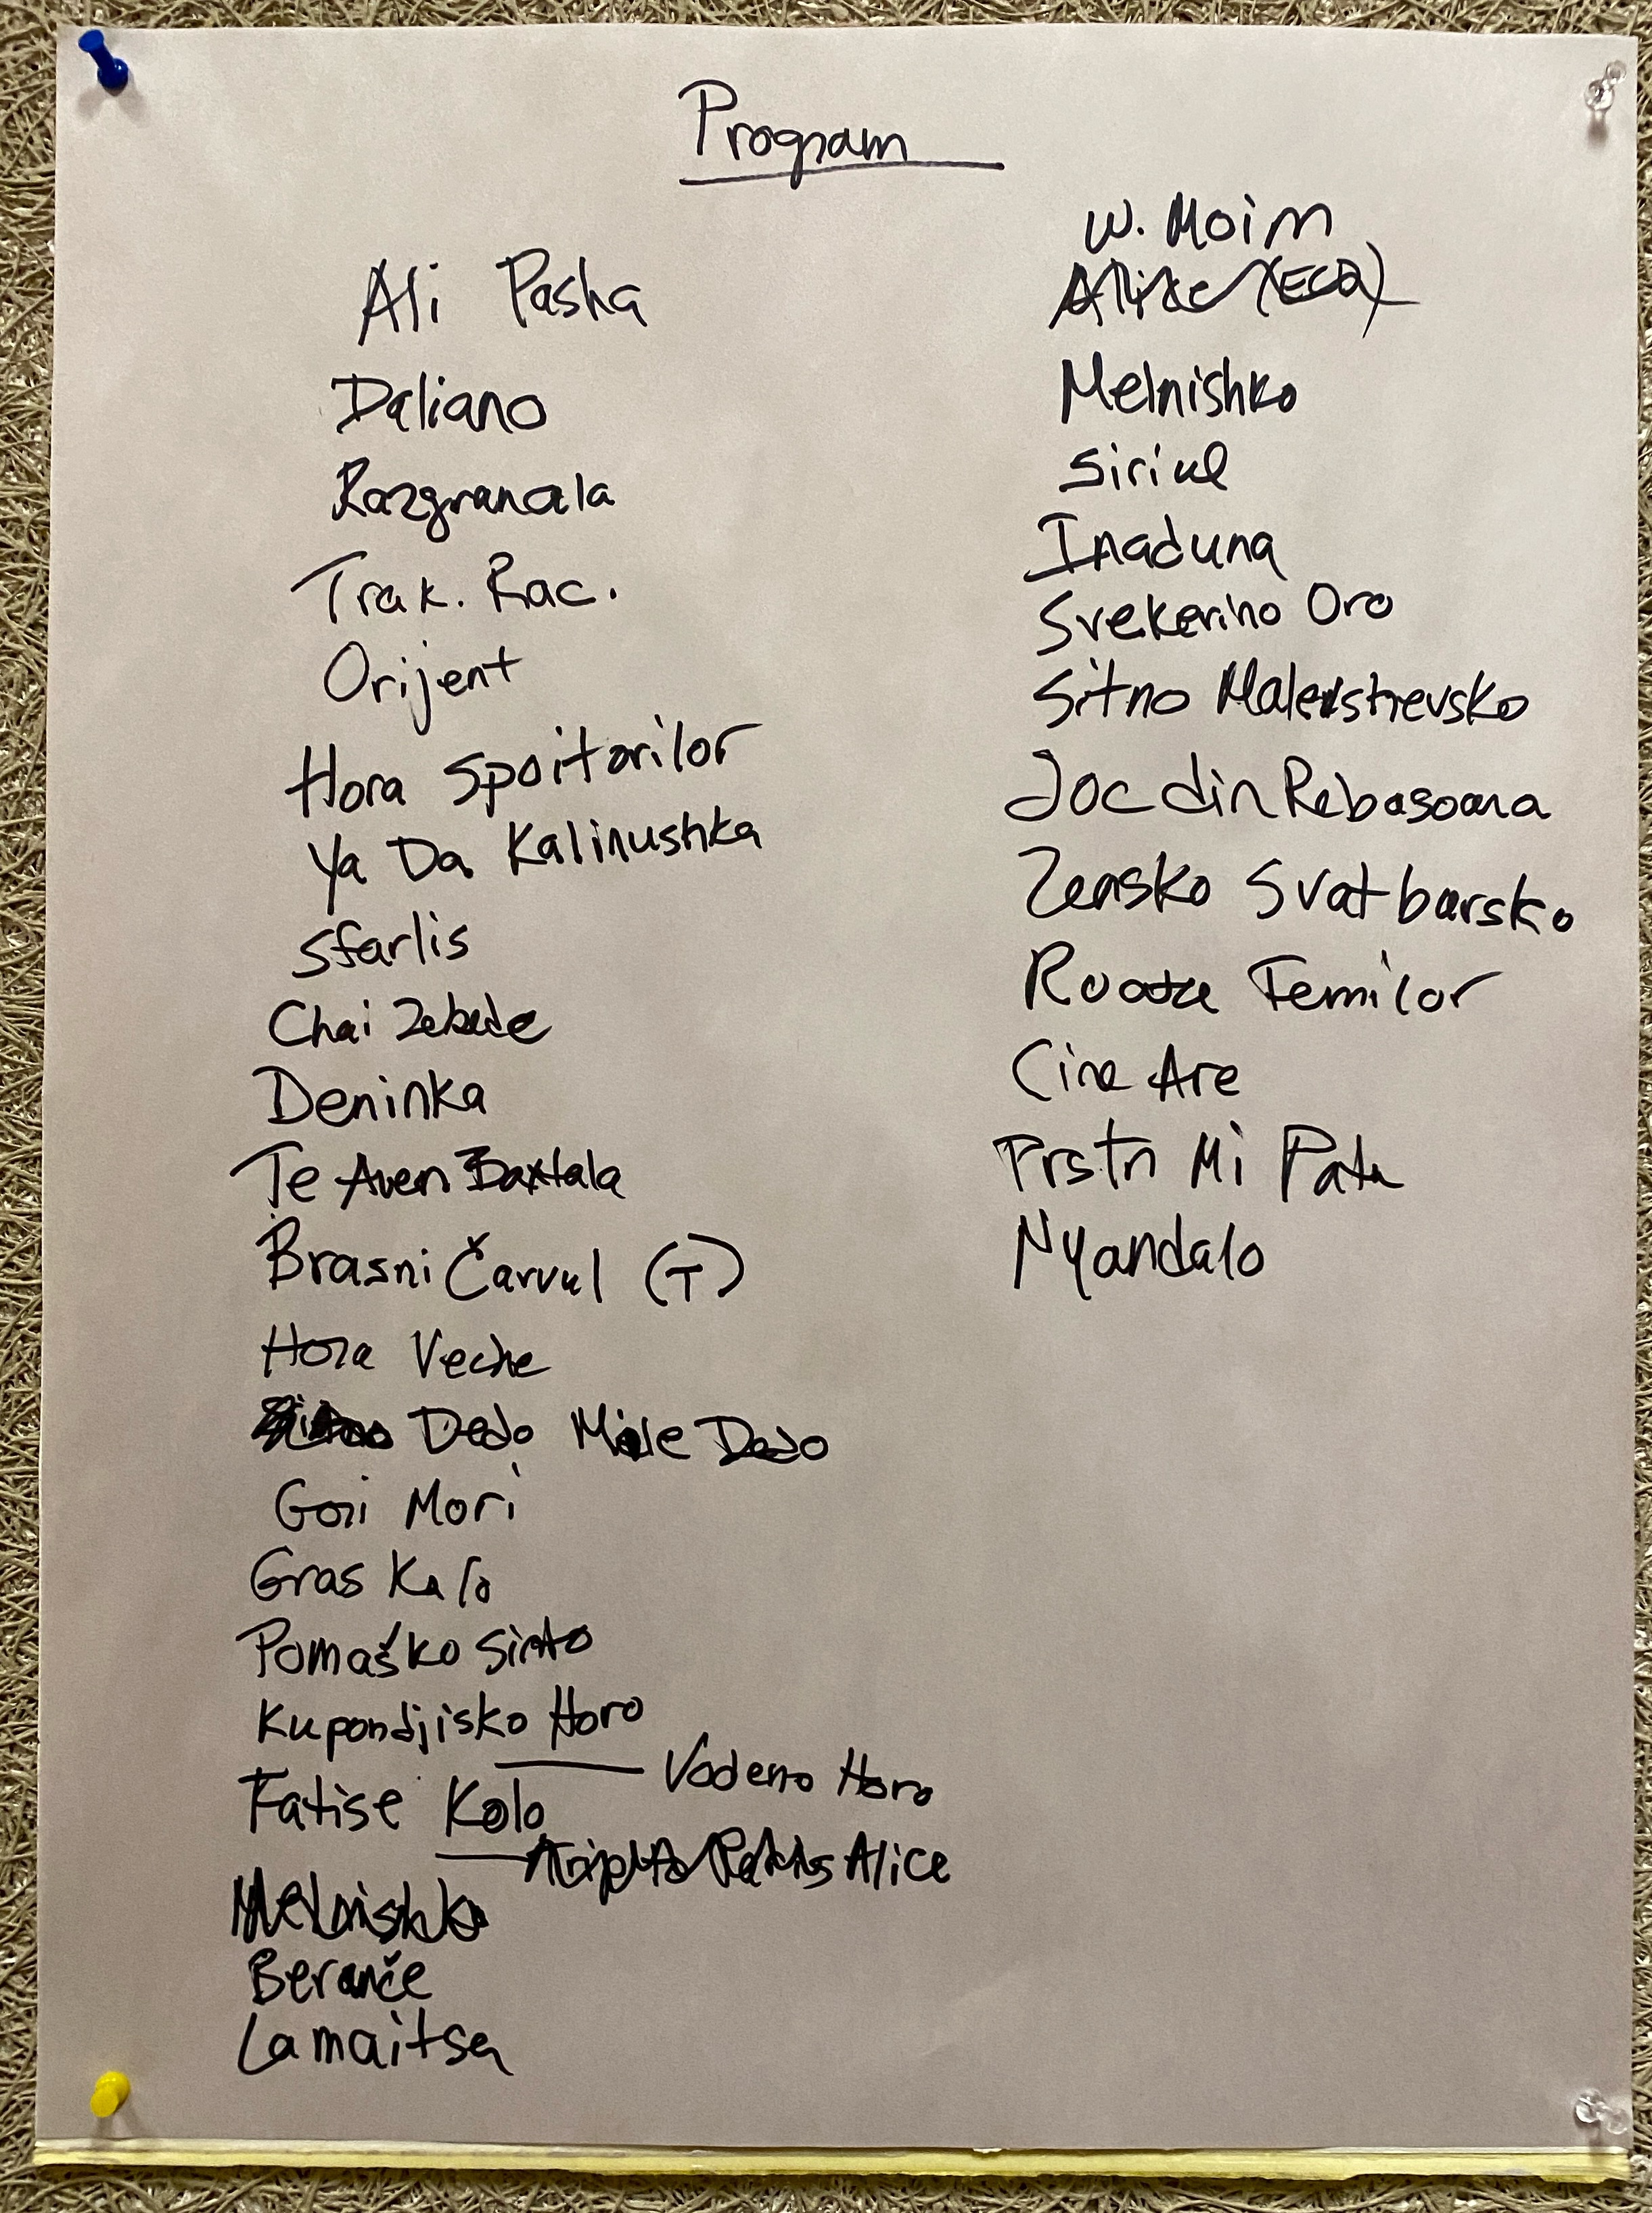 Program
Ali Pasha
Daliano
Razgranala
Trak. Rac.
Orijent
Hora Spoitorilor
Ya Da Kalinushka
Sfarlis
Chai Zebede
Deninka
Te Aven Baxtala
Brasni Čarvul (T)
Hora Veche
Dedo Mile Dedo
Gori Mori
Gras Kalo
Pomaško Sirto
Kupondjisko Horo
Vodeno Horo
Fatise Kolo
Alice
Melnishko
Beranče
Lamaitsa
W. Moim
Alice (ECD)
Melnishko
Siriul
Inaduna
Svekerino Oro
Sitno Maleshevsko
Joc din Rebasoara
Zensko Svatbarsko
Roata Femilor
Cine Are
Prstn Mi Patn
Nyandalo